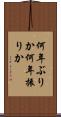 何年ぶり
か何年振
りか